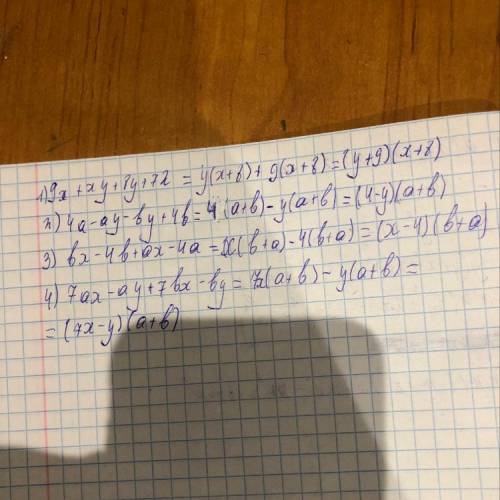 1) 9x + xy + 8y + 72 = y(x+8) + 9(x+8) = (y+9)(x+8)
2) 4a - ay - by + 4b = 4(a+b) - y(a+b) = (4-y)(a+b)
3) bx - 4b + ax - 4a = x(b+a) - 4(b+a) = (x-4)(b+a)
4) 7ax - ay + 7bx - by = 7x(a+b) - y(a+b) =
= (7x-y)(a+b)